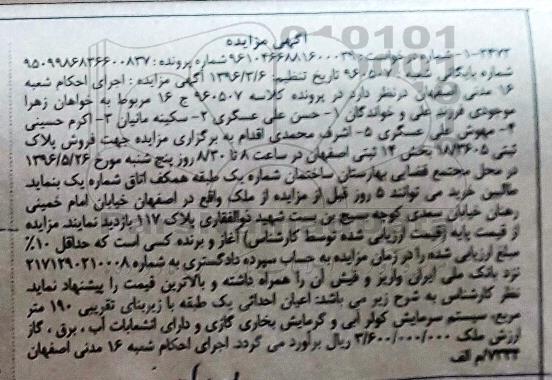 آگهی مزایده
۱-۳۴۷۳- شماره درخواست: ۹۶۱۰۴۶۶۸۸۱۶۰۰۰۳۹ شماره پرونده: ۹۵۰۹۹۸۶۸۳۶۶۰۰۸۳۷
شماره بایگانی شعبه: ۹۶۰۵۰۷ تاریخ تنظیم: ۱۳۹۶/۳/۶ آگهی مزایده: اجرای احکام شعبه
۱۶ مدنی اصفهان درنظر دارد در پرونده کلاسه ۹۶۰۵۰۷ ج ۱۶ مربوط به خواهان زهرا
موجودی فرزند علی و خواندگان ۱- حسن علی عسگری ۲- سکینه مانیان ۳- اکرم حسینی
۴- مهوش علی عسگری ۵- اشرف محمدی اقدام به برگزاری مزایده جهت فروش پلاک
ثبتی ۱۸/۳۶۰۵ بخش ۱۴ ثبتی اصفهان در ساعت ۸ تا ۸/۳۰ روز پنج شنبه مورخ ۱۳۹۶/۵/۲۶
در محل مجتمع قضایی بهارستان ساختمان شماره یک طبقه همکف اتاق شماره یک بنماید.
طالبین خرید می توانند ۵ روز قبل از مزایده از ملک واقع در اصفهان خیابان امام خمینی
رهنان خیابان سعدی کوچه بسیج بن بست شهید ذوالفقاری پلاک ۱۱۷ بازدید نمایند. مزایده
از قیمت پایه (قیمت ارزیابی شده توسط کارشناس) آغاز و برنده کسی است که حداقل ۱۰٪
مبلغ ارزیابی شده را در زمان مزایده به حساب سپرده دادگستری به شماره ۲۱۷۱۲۹۰۲۱۰۰۰۸
نزد بانک ملی ایران واریز و فیش آن را همراه داشته و بالاترین قیمت را پیشنهاد نماید.
نظر کارشناس به شرح زیر می باشد: اعیان احداثی یک طبقه با زیربنای تقریبی ۱۹۰ متر
مربع، سیستم سرمایش کولر آبی و گرمایش بخاری گازی و دارای انشعابات آب ، برق ، گاز
ارزش ملک ۳/۶۰۰/۰۰۰/۰۰۰ ریال برآورد می گردد. اجرای احکام شعبه ۱۶ مدنی اصفهان
۷۳۳۳/م الف